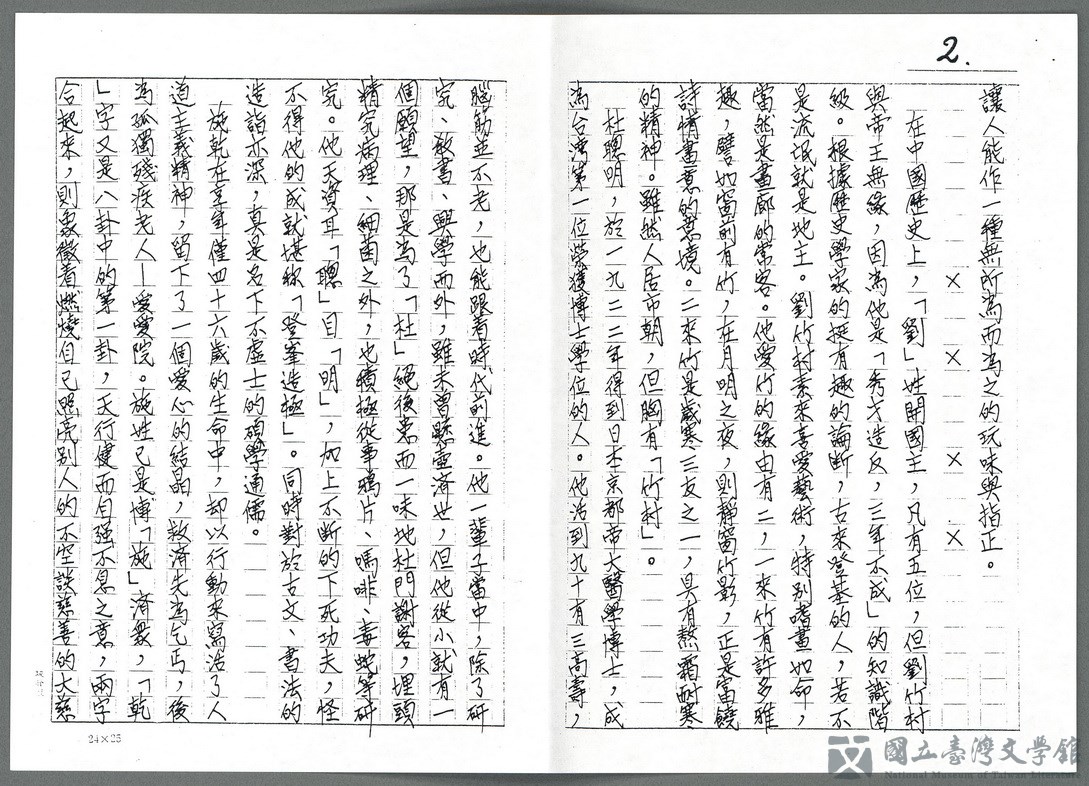 2.
讓人能作一種無所為而為之的玩味與指正。
××××
在中國歷史上，「劉」姓開國主，凡有五位，但劉竹村
與帝王無緣，因為他是「秀才造反，三年不成」的知識階
級。根據歷史學家的挺有趣的論斷，古來登基的人，若不
是流氓就是地主。劉竹村素來喜愛藝術，特別嗜畫如命，
當然是畫廊的常客。他愛竹的緣由有二，一來竹有許多雅
趣，譬如窗前有竹，在月明之夜，則靜窗竹影，正是當饒
詩情畫意的意境。二來竹是歲寒三友之一，具有熬霜耐寒
的精神。雖然人居市朝，但胸有「竹村」。
杜聰明，於一九二二年得到日本京都帝大醫學博士，成
為台灣第一位榮獲博士學位的人。他活到九十有三高壽，
腦筋並不老，也能跟着時代前進。他一輩子當中，除了研
究、教書、興學而外，雖未曾懸壺濟世，但他從小就有一
個願望，那是為了「杜」絕後患而一味地杜門謝客，埋頭
精究病理、細菌之外，也積極從事鴉片、嗎啡、毒蛇等研
究。他天資耳「聰」目「明」，加上不斷的下死功夫，怪
不得他的成就堪稱「登峯造極」。同時對於古文、書法的
造詣亦深，真是名下不虛士的碩學通儒。
施乾在享年僅四十六歲的生命中，却以行動來寫活了人
道主義精神，留下了一個愛心的結晶，救濟先為乞丐，後
為孤獨殘疾老人—愛愛院。施姓已是博「施」濟衆，「乾
」字又是八卦中的第一卦，天行健而自强不息之意，兩字
合起來，則象徵着燃燒自己照亮別人的不空談慈善的大慈
24×25
國立臺灣文學館
National Museum of Taiwan Literature